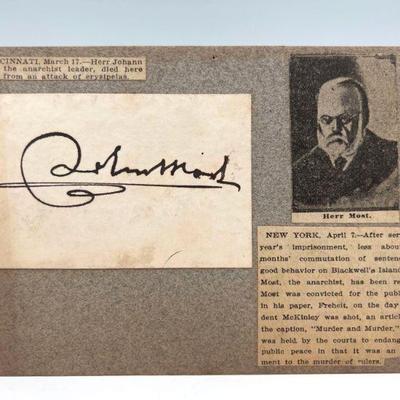 CINNATI, March 17.—Herr Johann
the anarchist leader, died here
from an attack of erysipelas.
John Most
Herr Most.
NEW YORK, April 7.—After serv
year's imprisonment, less abou
months' commutation of senten
good behavior on Blackwell's Island
Most, the anarchist, has been re
Most was convicted for the publ
in his paper, Freheit, on the day
dent McKinley was shot, an articl
the caption, "Murder and Murder,"
was held by the courts to endang
public peace in that it was an
ment to the murder of rulers.